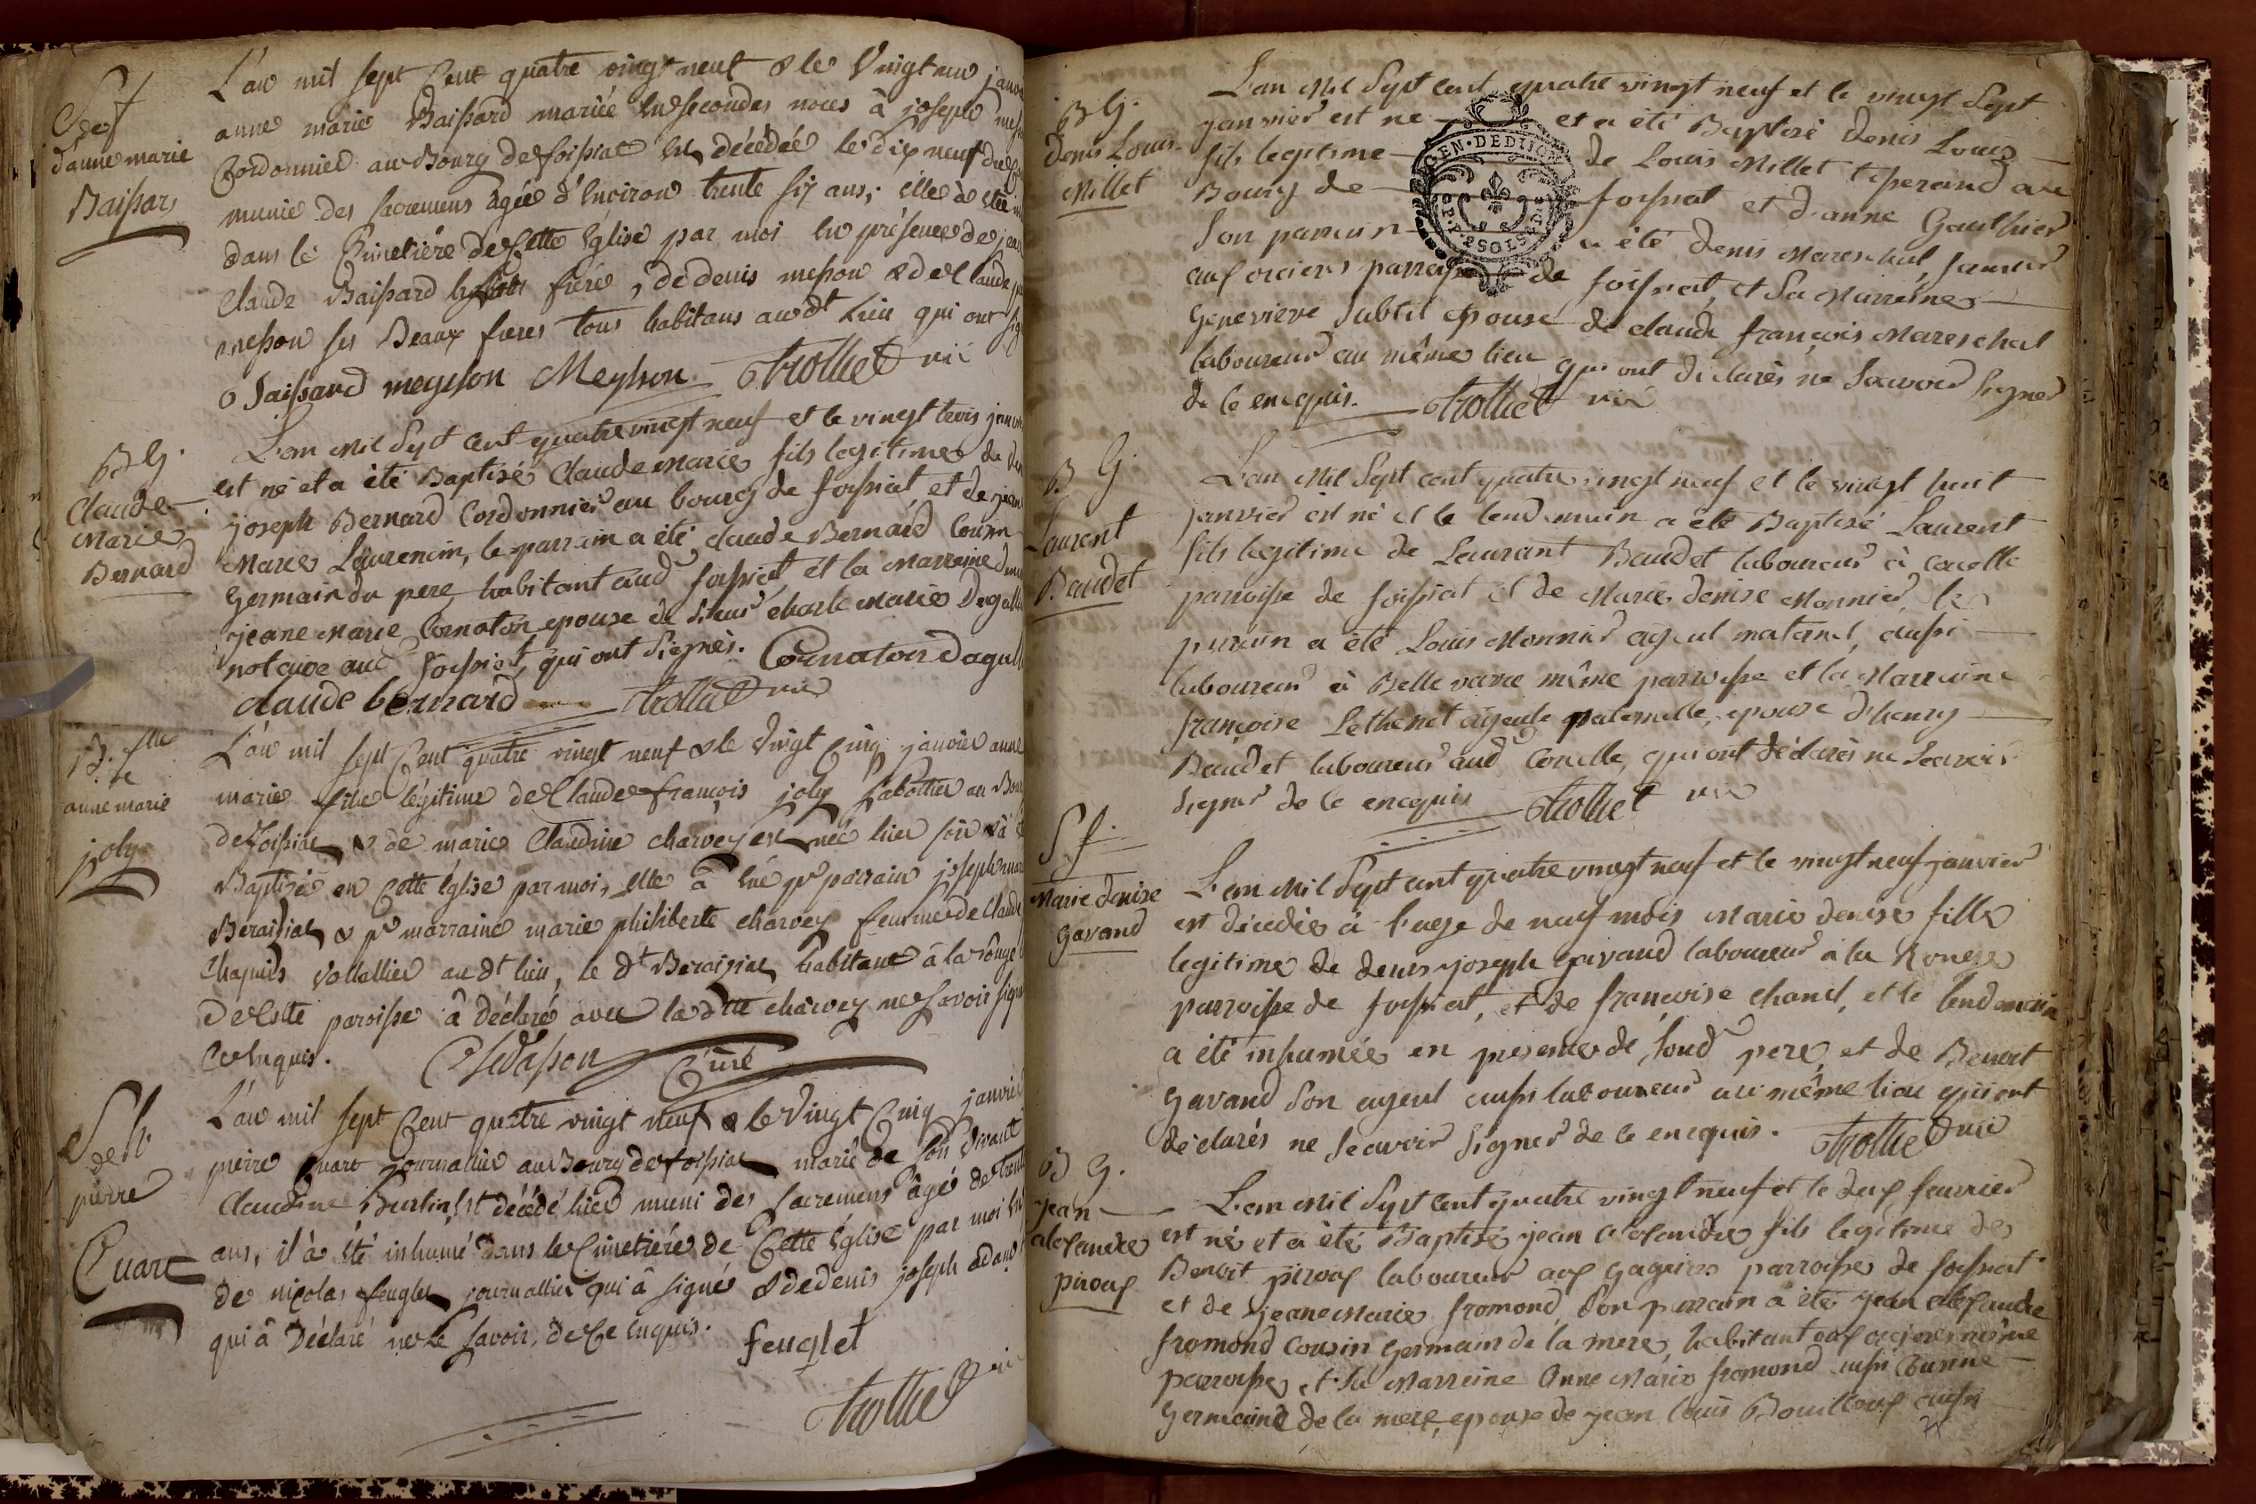 S f
d'anne marie
Baissard
L'an mil sept Cent quatre vingt neuf & le Vingt un janv
anne marie Baissard mariée en secondes noces à joseph
Cordonnier au Bourg de foissiat est décédée le dix neuf du
munie des sacremens âgée d'environ trente six ans; elle à été
dans le Cimetière de Cette Eglise par moi en présence de
Claude Baissard frère, de denis messon & de Claude
messon ses Beaux freres tous habitans audt Lieu qui ont sig
Baissard meysson Meysson Trolliet vic
B G.
Claude
Marie
Bernard
L'an Mil Sept Cent quatre vingt neuf et le vingt trois janv
est né et a été Baptisé Claude Marie fils legitime de
joseph Bernard Cordonnier au bourg de foissiat, et de jeane
Marie Laurencin, le parrain a été claude Bernard Cousin
Germain du pere habitant aud foissiat, et la Marreine
jeane Marie Cornaton epouse de Sieur charle Marie Dagall
notaire aud foissiat, qui ont Signés. Cornaton Dagall
claude bernard Trolliet vic
B. flle
anne marie
joly
L'an mil sept Cent quatre vingt neuf & le Vingt Cinq janvier anne
marie fille légitime de Claude françois joly Sabottier au Bour
de foissiat & de marie Claudine charvey est née hier soir & à
Baptisée en Cette église par moi, elle à eue pr parrain joseph marie
Beraisiat & pr marraine marie philiberte charvey femme de Claude
Chapuis Voilallier au dt lieu, le dt Beraisiat habitant à la rouge
de Cette paroisse â Déclaré avec la dtte charvey ne Savoir signe
Ce Enquis. Curé
S h
de
pierre
Cuart
L'an mil sept Cent quatre vingt neuf & le Vingt Cinq janvier
pierre Cuart journallier au Bourg de foissiat marié de son Vivant
Claudine Burtin est décédé hier muni des Sacremens âgé de trente
ans, il à été inhumé dans le Cimetière de Cette église par moi en
de nicolas feuglet journallier qui â signé & de denis joseph adam
qui â Déclaré ne le Savoir, de Ce Enquis. feuglet
Trolliet vic
B G.
Denis Louis
Millet
GEN. DEDIJON
L'an Mil Sept Cent quatre vingt neuf et le vingt Sept
janvier est né et a été Baptisé Denis Louis
fils legitime de Louis Millet tisserand au
Bourg de foissiat et d'anne Gauthier
Son parrain a été Denis Mareschal, fermier
aux oiciers parroisse de foissiat, et Sa Marreine
Genevieve Subtil epouse de claude françois Mareschal
laboureur au même lieu qui ont déclarés ne Scavoir Signer
de Ce enequis. Trolliet vic
B G.
Laurent
Baudet
L'an Mil Sept cent quatre vingt neuf et le vingt huit
janvier est né et le lendemain a été Baptisé Laurent
fils legitime de Laurant Baudet laboureur à Couelle
parroisse de foissiat et de Marie denise Monnier, le
parrain a été Louis Monnier ayeul maternel, aussi
laboureur à Belle vavre même parroisse et la Marreine
françoise Lethenet ayeule paternelle, epouse d'henry
Baudet laboureur aud Couelle, qui ont déclarés ne Scavoir
Signer de Ce enequis Trolliet vic
S f.
Marie denise
Gavand
L'an Mil Sept cent quatre vingt neuf et le vingt neuf janvier
est décédée à l'age de neuf mois Marie denise fille
legitime de denis joseph Gavand laboureur à la Rouge
parroisse de foissiat, et de françoise Chanel, et le lendemain
a été inhumée en presence de Soud pere, et de Benoit
Gavand Son ayeul aussi laboureur au même lieu qui ont
déclarés ne Scavoir Signer de Ce enequis. Trolliet vic
B G.
jean
alexandre
piroux
L'an Mil Sept Cent quatre vingt neuf et le deux fevrier
est né et a été Baptisé jean alexandre fils legitime de
Benoit piroux laboureur aux Gagnies parroisse de foissiat
et de jeane Marie fromond, Son parrain a été jean alexandre
fromond Cousin germain de la mere, habitant aux oiciers même
parroisse, et Sa Marreine Anne Marie fromond aussi Cousine
Germaine de la mere, epouse de jean louis Bouilloux aussi